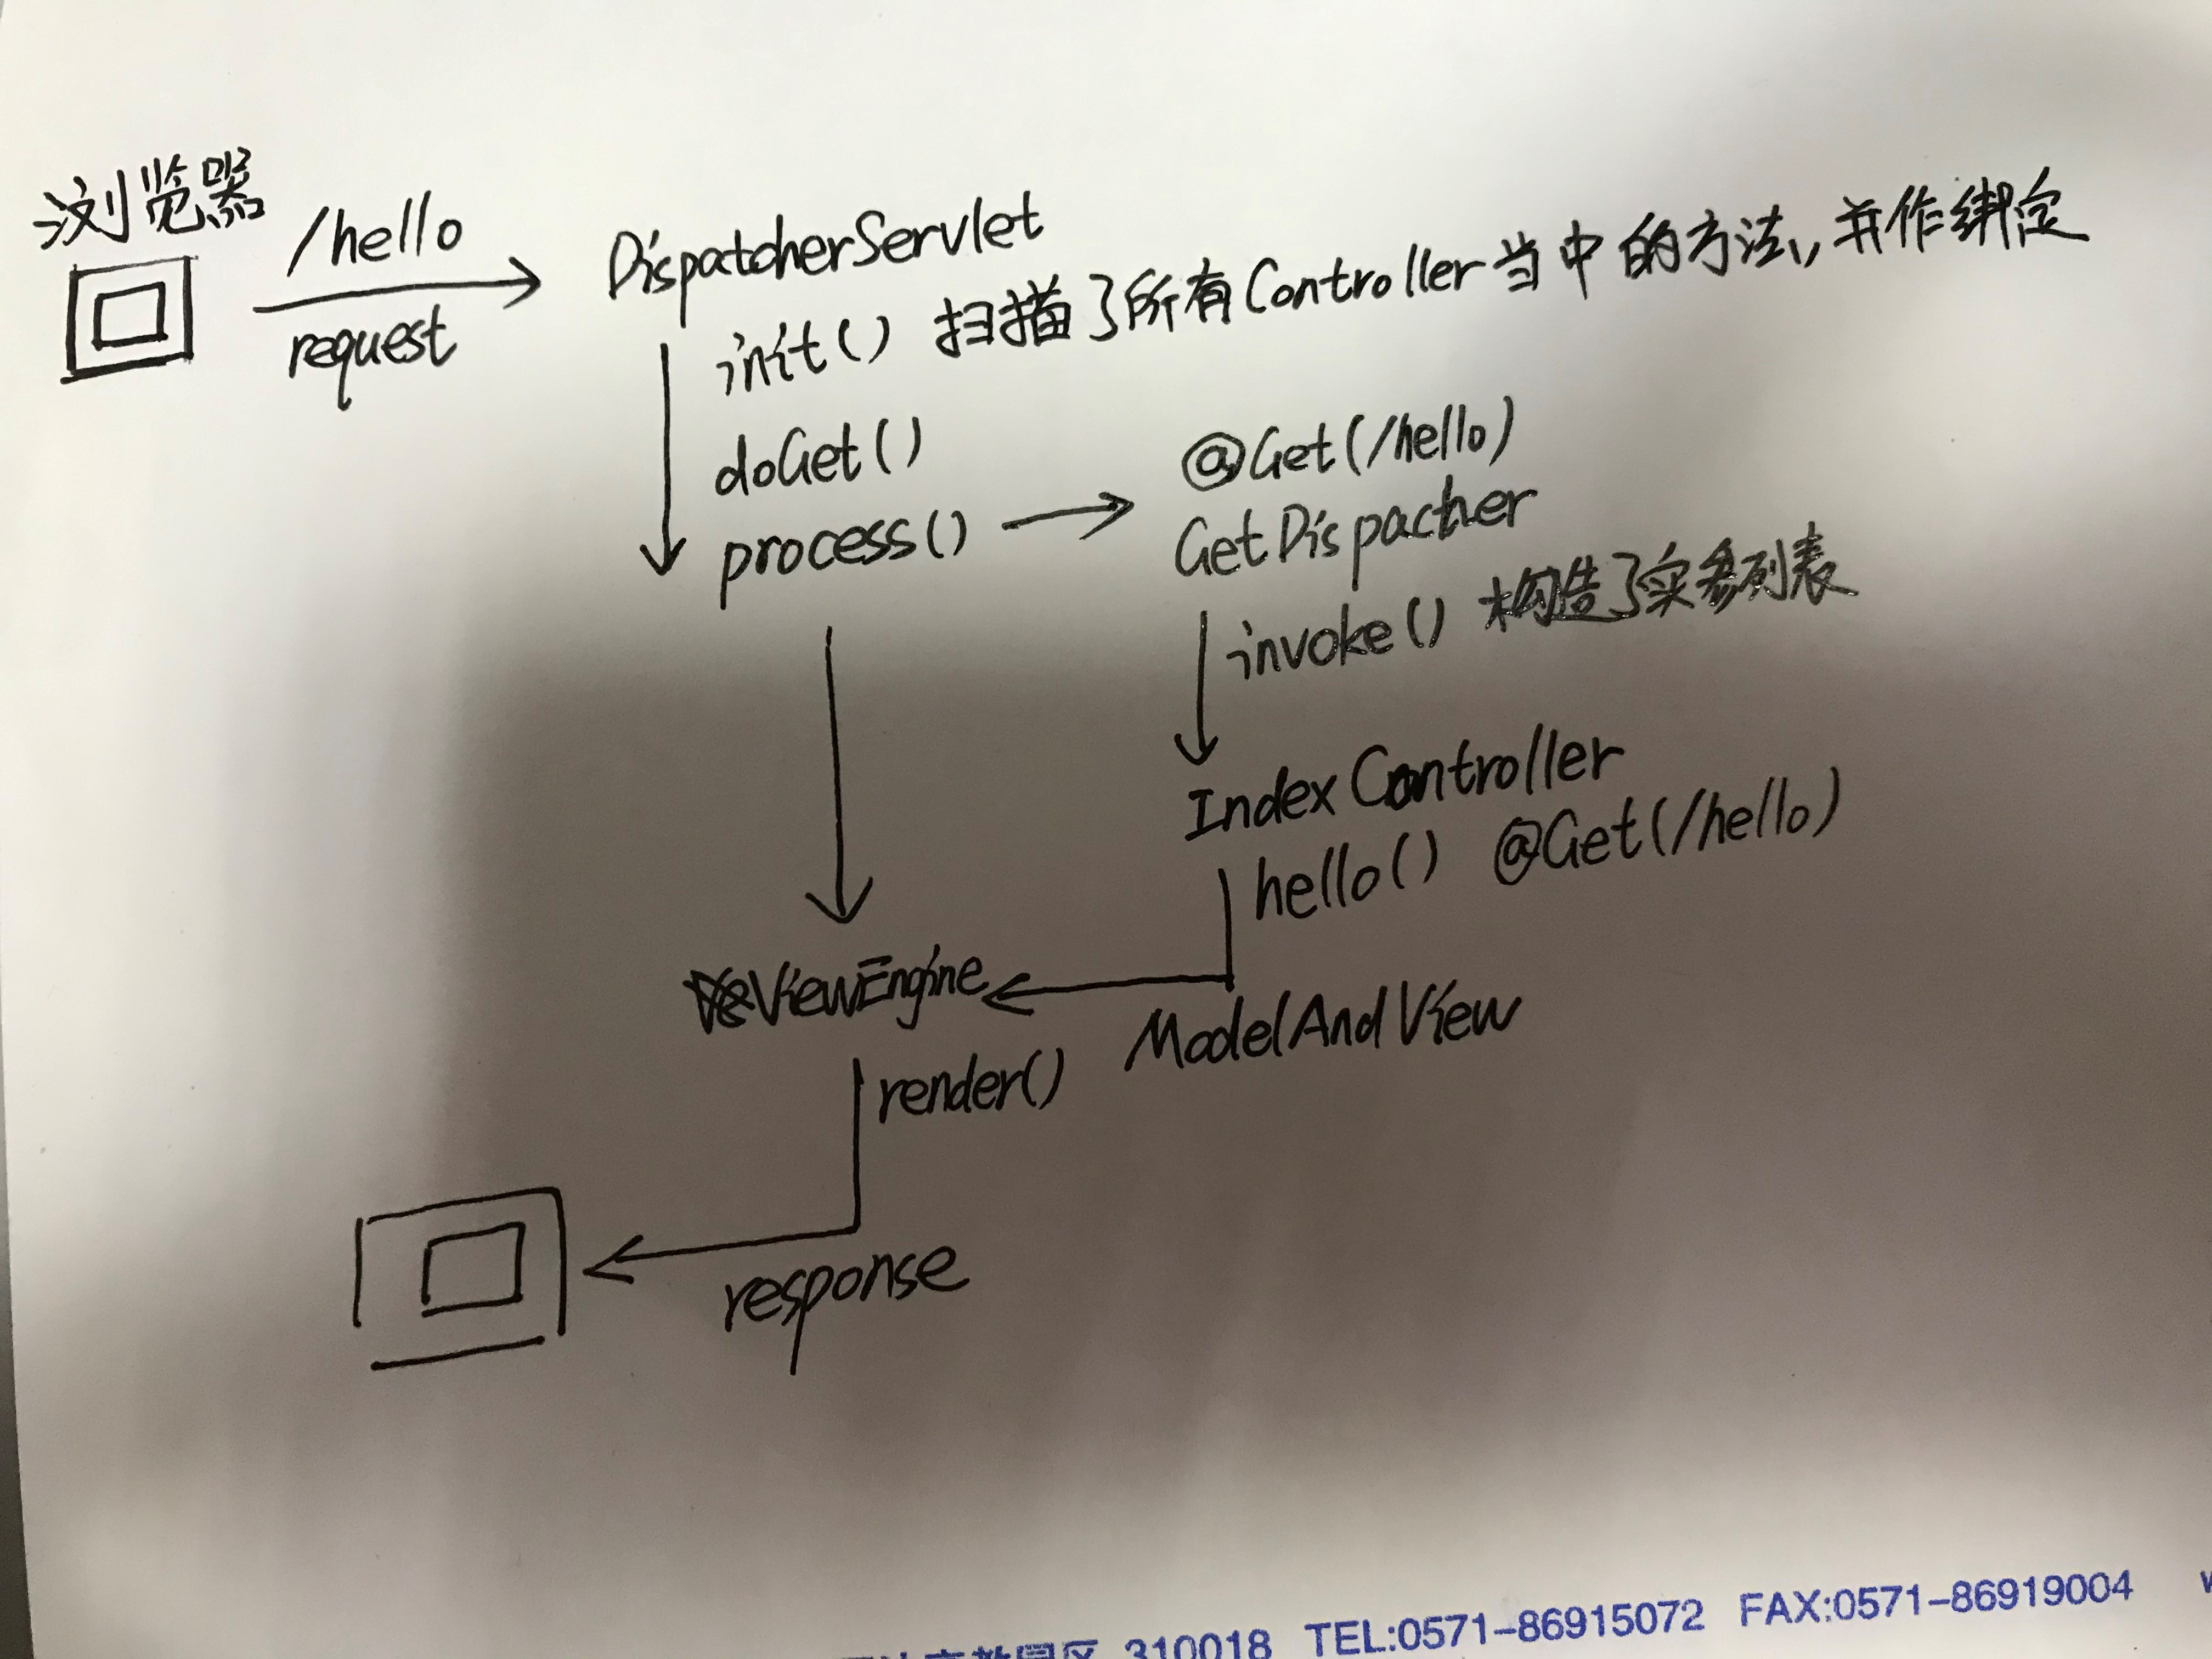 浏览器
/hello
request
DispatcherServlet
init() 扫描了所有Controller当中的方法,并作绑定
doGet()
process()
@Get(/hello)
GetDispacther
invoke() 构造了实参列表
IndexController
hello() @Get(/hello)
ViewEngine
ModelAndView
render()
response
高教园区 310018 TEL:0571-86915072 FAX:0571-86919004